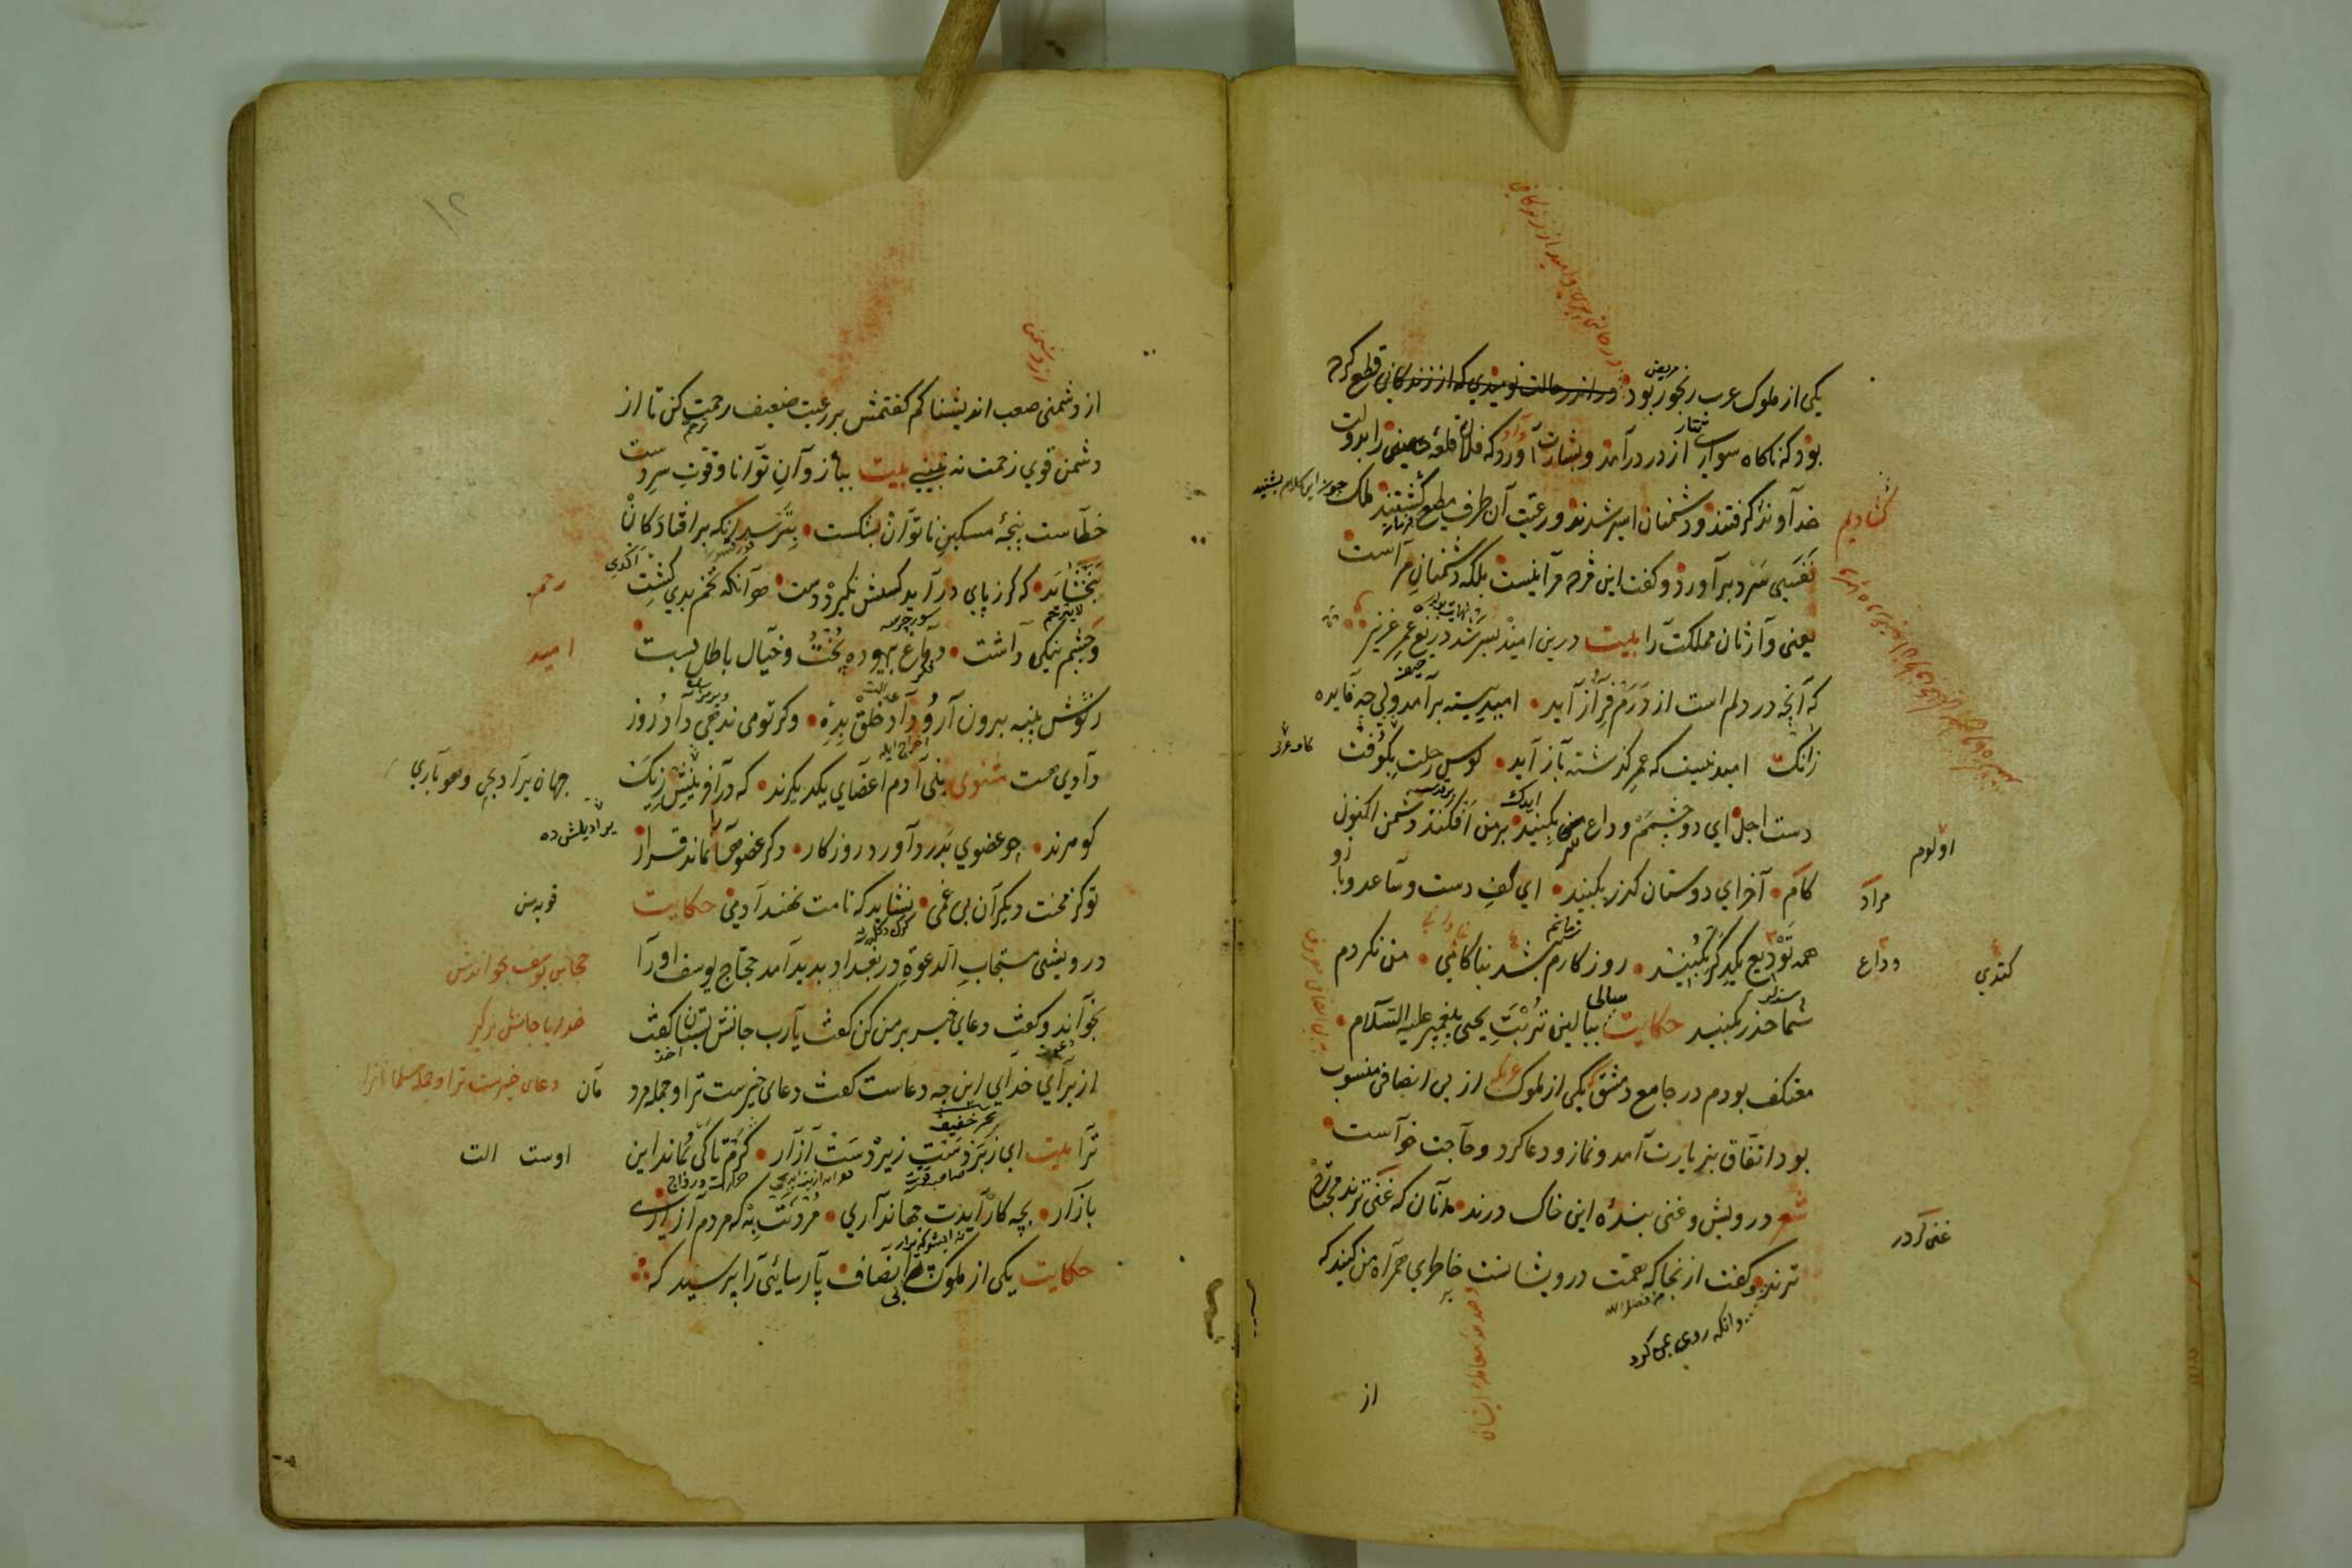 یکی از ملوک عرب رنجور بود در اندر حالت نومیدی که از زندگانی قطع کرده
مریض
بود که ناکاه سواری از در درآمد و بشارت آورد که فلان قلعه را بدولت
خداوند گرفتند و دشمنان اسیر شدند و رعیت آن طرف مطیع گشتند ملک چون این کلام بشنید
نفسی سرد برآورد و گفت این مژده مرا نیست بلکه دشمنان مراست
یعنی وارثان مملکت را بیت درین امید بسر شد دریغ عمر عزیز
که آنچه در دلم است از درم فراز آید امید بسته برآمد ولی چه فایده
زانک امید نیست که عمر گذشته باز آید کوس رحلت بکوفت
دست اجل ای دو چشمم وداع سر بکنید بر من افکند دشمن اکنون
کام آخر ای دوستان گذر بکنید ای کف دست و ساعد و بازو
همه تودیع یکدیگر بکنید روزکارم بشد بناکامی من نکردم
شما حذر بکنید حکایت ببالین تربت یحیی پیغمبر علیه السلام
معتکف بودم در جامع دمشق یکی از ملوک عرب از بی انصافی منسوب
بود اتفاق بزیارت آمد و نماز و دعا کرد و حاجت خواست
شعر درویش و غنی بنده این خاک درند و آنان که غنی ترند محتاج
ترند و گفت از انجا که همت درویشانست خاطری همراه من کنید که
وانکه روی بمن کرد
از
مراد
وداع
کتدی
از دشمنی صعب اندیشناکم گفتمش بر رعیت ضعیف رحمت کن تا از
دشمن قوی زحمت نه بینی بیت ببازوان توانا و قوت سر دست
خطاست پنجه مسکین ناتوان بشکست بترسد آنکه بر افتادکان
نبخشاید که گر ز پای در آید کسش نگیرد دست هر آنکه تخم بدی کشت
و چشم نیکی داشت دماغ بیهوده پخت و خیال باطل بست
ز گوش پنبه برون آر و داد خلق بده وگر تو می ندهی داد روز
دادی هست مثنوی بنی آدم اعضای یکدیگرند که در آفرینش ز یک
گوهرند چو عضوی بدرد آورد روزکار دگر عضوها را نماند قرار
تو کز محنت دیگران بی غمی نشاید که نامت نهند آدمی حکایت
درویشی مستجاب الدعوة در بغداد بدید آمد حجاج یوسف او را
بخواند و گفت دعای خیر بر من کن گفت یارب جانش بستان گفت
از برای خدای این چه دعاست گفت دعای خیرست ترا و جمله مرد
ترا بیت ای زبردست زیردست آزار گرم تا کی بماند این
بازار بچه کار آیدت جهانداری مردنت به که مردم آزاری
حکایت یکی از ملوک بی انصاف پارسائی را پرسید که
رحم
امید
حجاج یوسف بخواندش
خدایا جانش برگیر
دعای خیرست ترا و جمله مسلمانانرا
اوست الت
۱۲